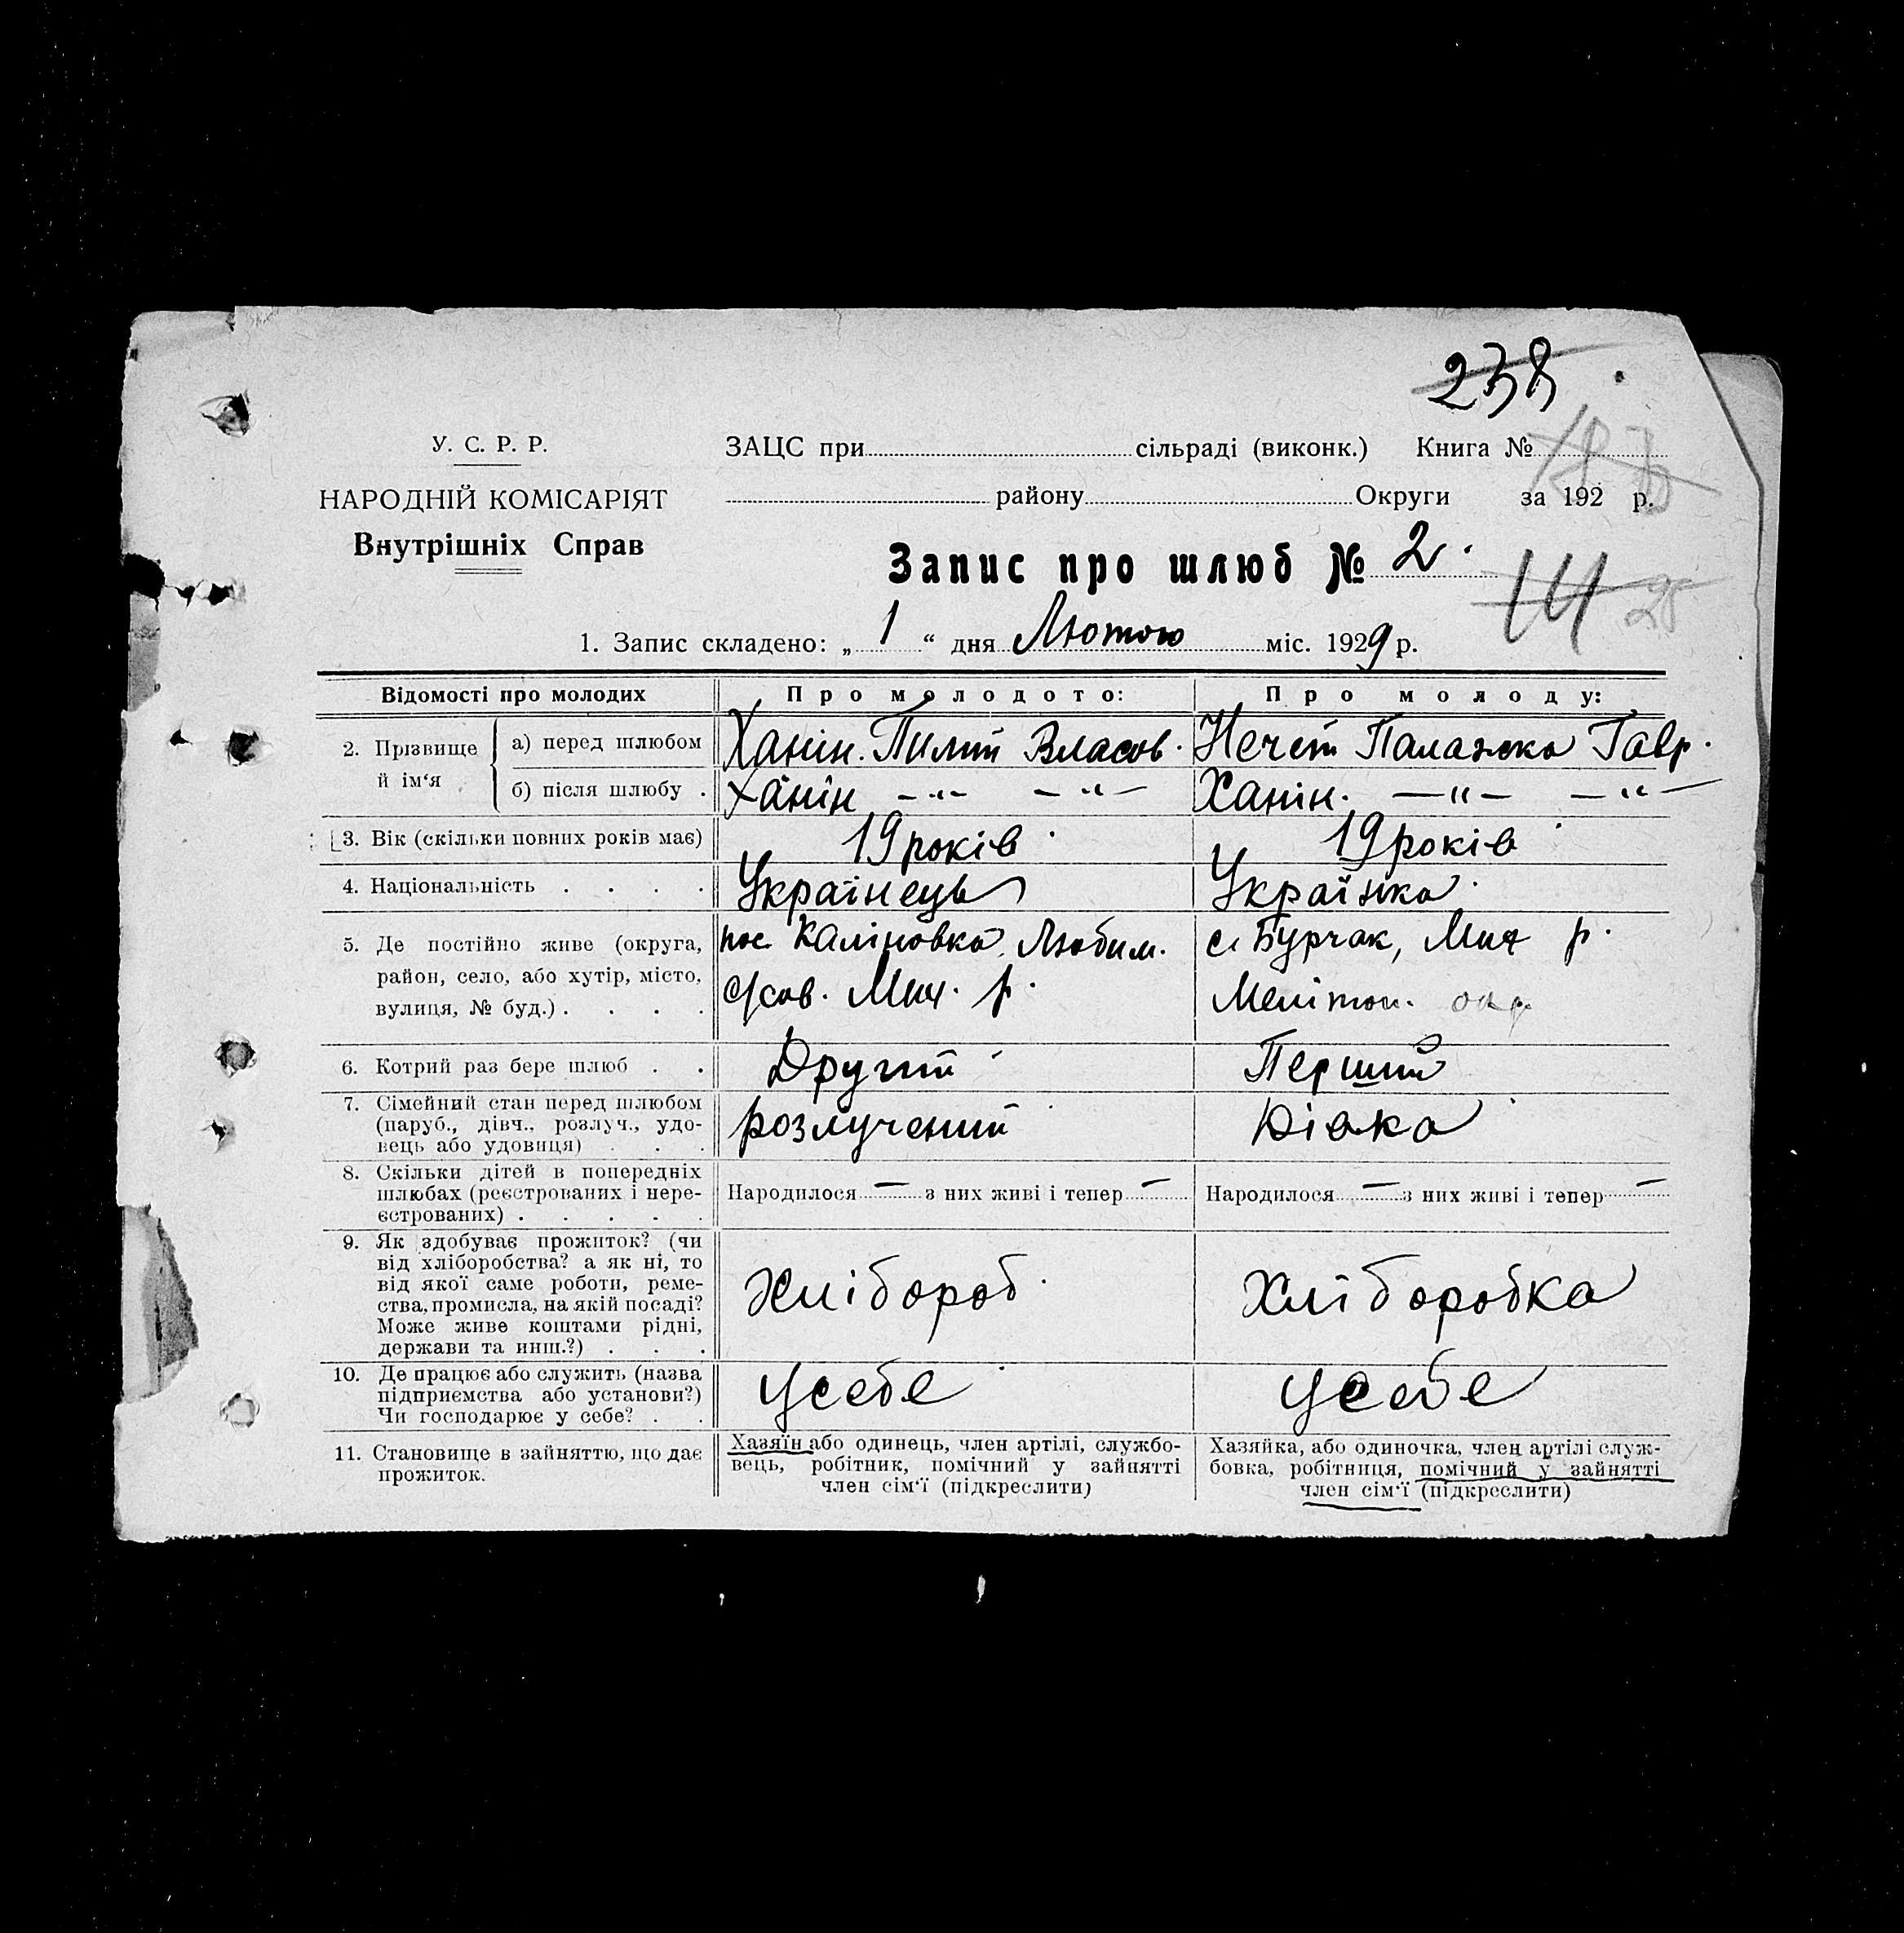 238
У. С. Р. Р.
ЗАЦС при сільраді (виконк.) Книга №
НАРОДНІЙ КОМІСАРІЯТ
району Округи за 192 р.
Внутрішніх Справ
Запис про шлюб № 2.
1. Запис складено: „ 1 “ дня Лютого міс. 1929 р.
Відомості про молодих
Про молодого:
Про молоду:
2. Прізвище й ім‘я
а) перед шлюбом
Ханін. Пилип Власов.
Нечет Палажка Гавр.
б) після шлюбу .
Ханін — „ — — „ —
Ханін. — „ — — „ —
3. Вік (скільки повних років має)
19 років
19 років
4. Національність . . . .
Українець
Українка.
5. Де постійно живе (округа,
район, село, або хутір, місто,
вулиця, № буд.) . . . .
пос. Каліновка, Любим.
с/сов. Мих. р.
с. Бурчак, Мих р.
Мелітоп. окр
6. Котрий раз бере шлюб . .
Другий
Перший
7. Сімейний стан перед шлюбом
(паруб., дівч., розлуч., удо-
вець або удовиця) . . .
розлучений
Дівка
8. Скільки дітей в попередніх
шлюбах (реєстрованих і нере-
єстрованих) . . . . .
Народилося — з них живі і тепер —
Народилося — з них живі і тепер —
9. Як здобуває прожиток? (чи
від хліборобства? а як ні, то
від якої саме роботи, реме-
ства, промисла, на якій посаді?
Може живе коштами рідні,
держави та инш.?) . . .
Хлібороб.
Хліборобка
10. Де працює або служить (назва
підприємства або установи?)
Чи господарює у себе? . .
Усебе
Усебе
11. Становище в зайняттю, що дає
прожиток.
Хазяїн або одинець, член артілі, службо-
вець, робітник, помічний у зайнятті
член сім‘ї (підкреслити)
Хазяйка, або одиночка, член артілі служ-
бовка, робітниця, помічний у зайнятті
член сім‘ї (підкреслити)